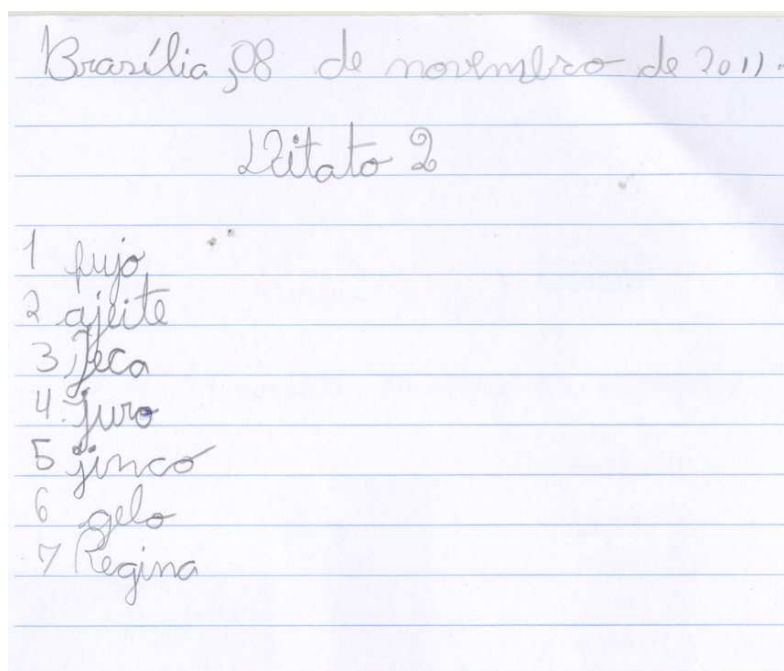 Brasília, 08 de novembro de 2011.
Ditato 2
1 fujo
2 ajeite
3. Jeca
4. juro
5 jinco
6 gelo
7 Regina